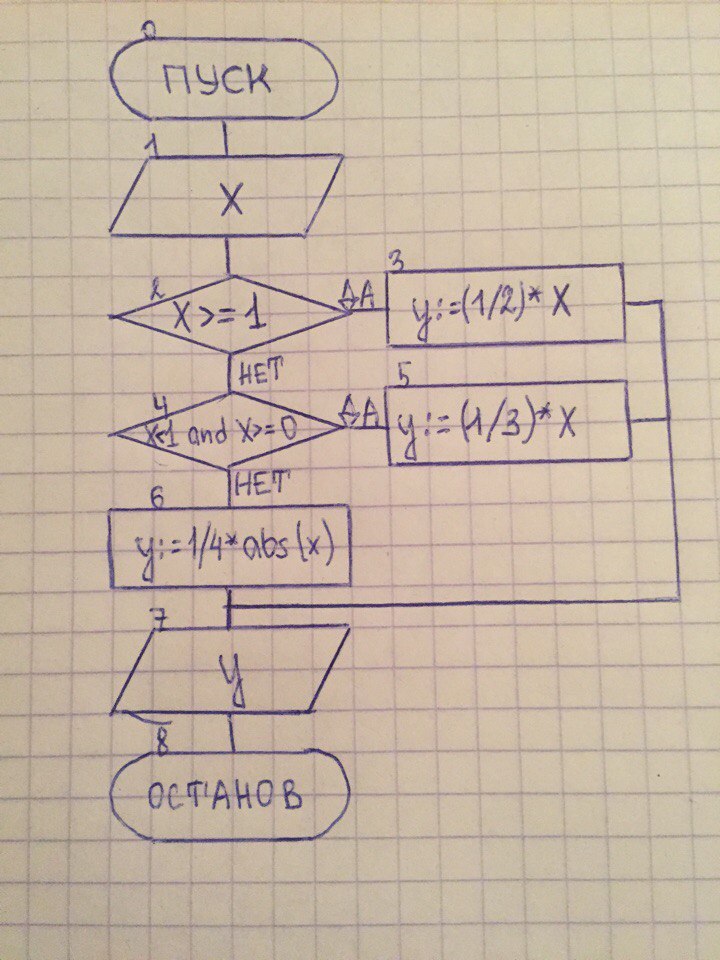 0
ПУСК
1
X
2
X>=1
ДА
3
y:=(1/2)*X
НЕТ
4
X<1 and X>=0
ДА
5
y:=(1/3)*X
НЕТ
6
y:=1/4*abs(x)
7
y
8
ОСТАНОВ